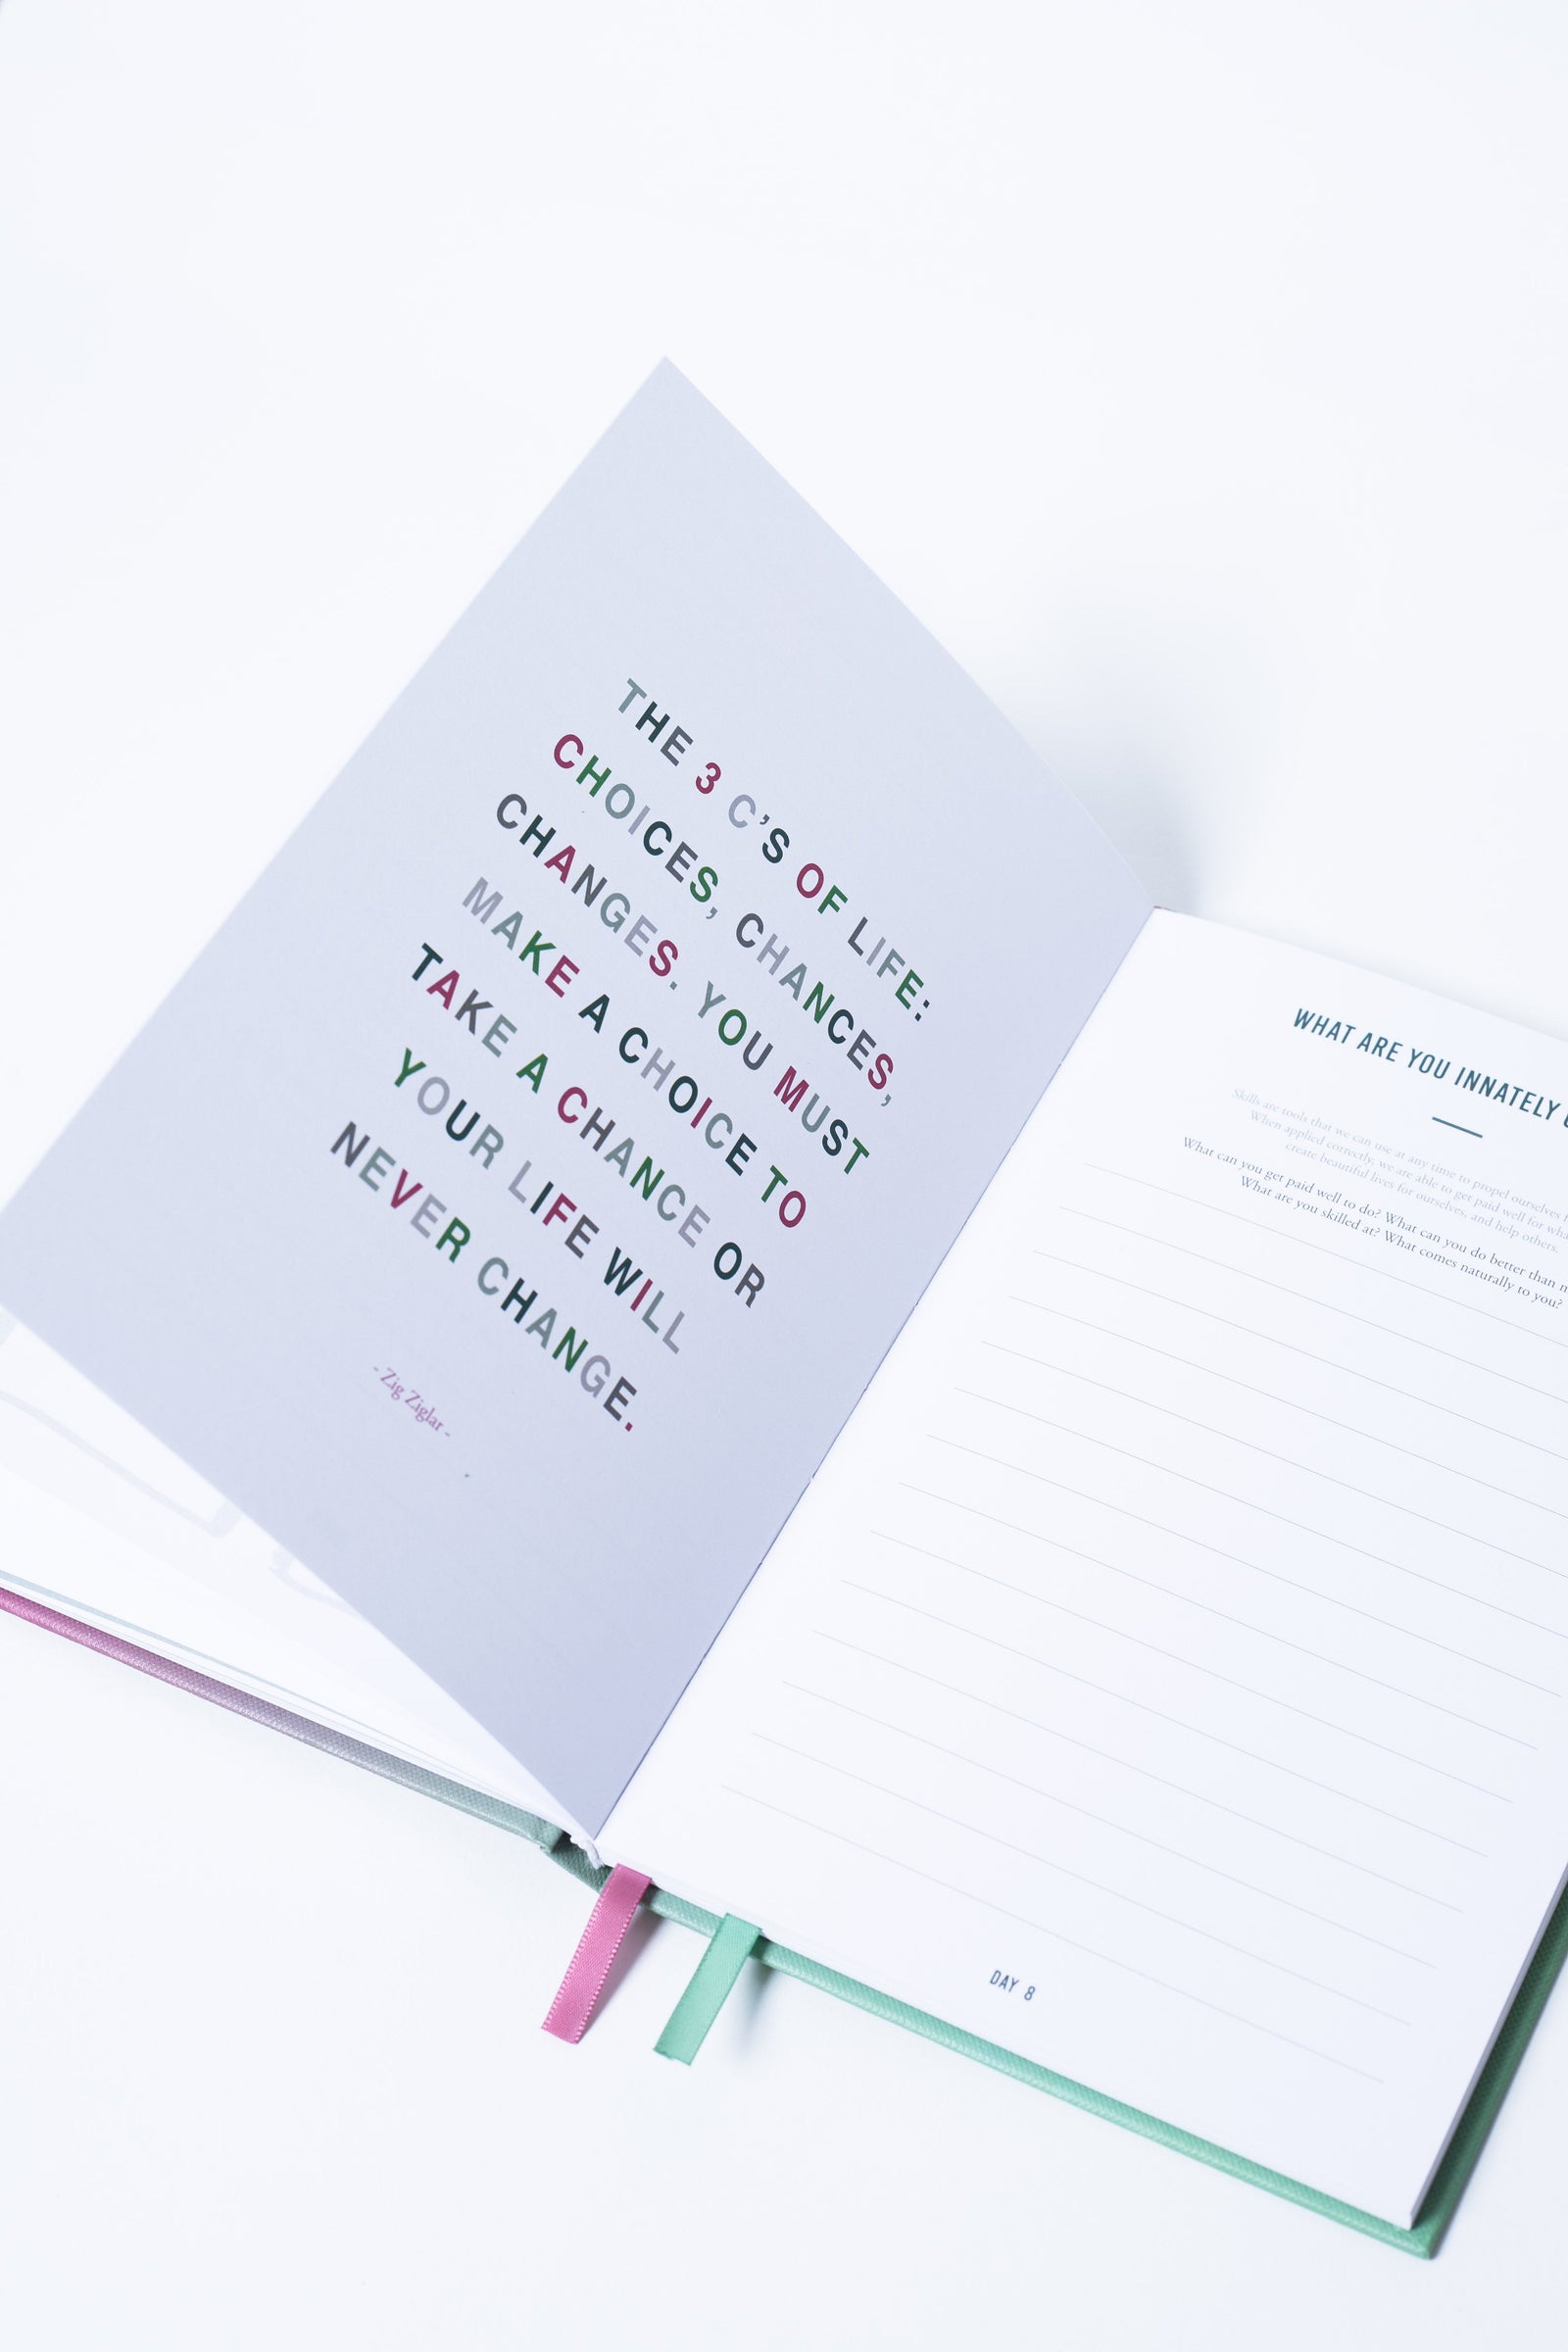 THE 3 C'S OF LIFE:
CHOICES, CHANCES,
CHANGES. YOU MUST
MAKE A CHOICE TO
TAKE A CHANCE OR
YOUR LIFE WILL
NEVER CHANGE.
- Zig Ziglar -
WHAT ARE YOU INNATELY
Skills are tools that we can use at any time to propel ourselves
When applied correctly, we are able to get paid well for
create beautiful lives for ourselves, and help others.
What can you get paid well to do? What can you do better than
What are you skilled at? What comes naturally to you?
DAY 8